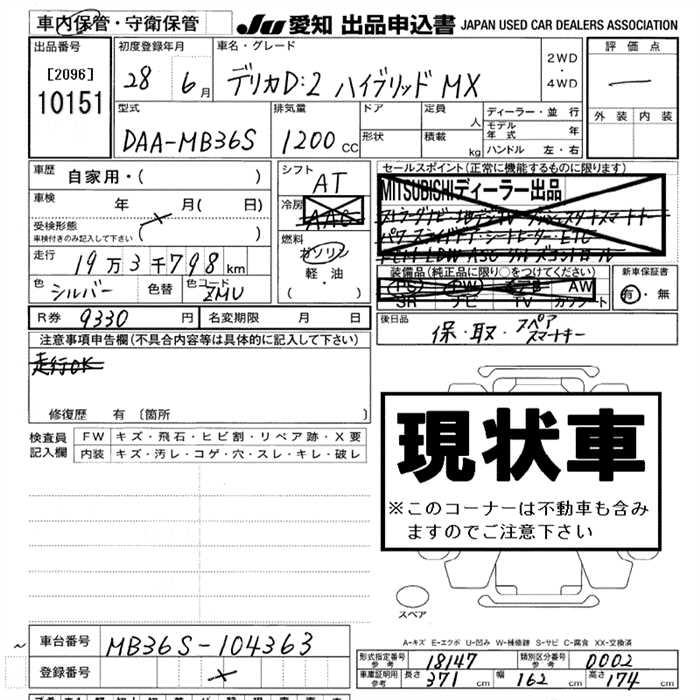 車内保管・守衛保管
JU 愛知 出品申込書 JAPAN USED CAR DEALERS ASSOCIATION
出品番号 初度登録年月 車名・グレード 評価点
[2096]
10151
28 6月 デリカD:2 ハイブリッド MX
2WD
・
4WD
型式 排気量 ドア 定員 人 ディーラー・並行 外装 内装
モデル年式 年
DAA-MB36S 1200cc 形状 積載 kg ハンドル 左・右
車歴 自家用・( )
車検 年 月( 日)
受検形態
車検付きのみ記入して下さい ( )
走行 19万3千798km
色 シルバー 色替 色コード ZMU
シフト AT
冷房 AAC
燃料 ガソリン
軽・油
( )
セールスポイント(正常に機能するものに限ります)
MITSUBISHIディーラー出品
装備品(純正品に限り○をつけてください)
(PS) (PW) AW
SR ナビ TV カワシート
新車保証書
有・無
R券 9330円 名変期限 月 日
後日品 保・取・スペアスマートキー
注意事項申告欄(不具合内容等は具体的に記入して下さい)
走行OK
修復歴 有〔箇所 〕
検査員記入欄 FW キズ・飛石・ヒビ割・リペア跡・X要
内装 キズ・汚レ・コゲ・穴・スレ・キレ・破レ
現状車
※このコーナーは不動車も含み
ますのでご注意下さい
スペア
A-キズ E-エクボ U-凹み W-補修跡 S-サビ C-腐食 XX-交換済
車台番号 MB36S-104363
登録番号
形式指定番号 参考 18147 類別区分番号 参考 0002
車庫証明用 参考 長さ 371cm 幅 162cm 高さ 174cm